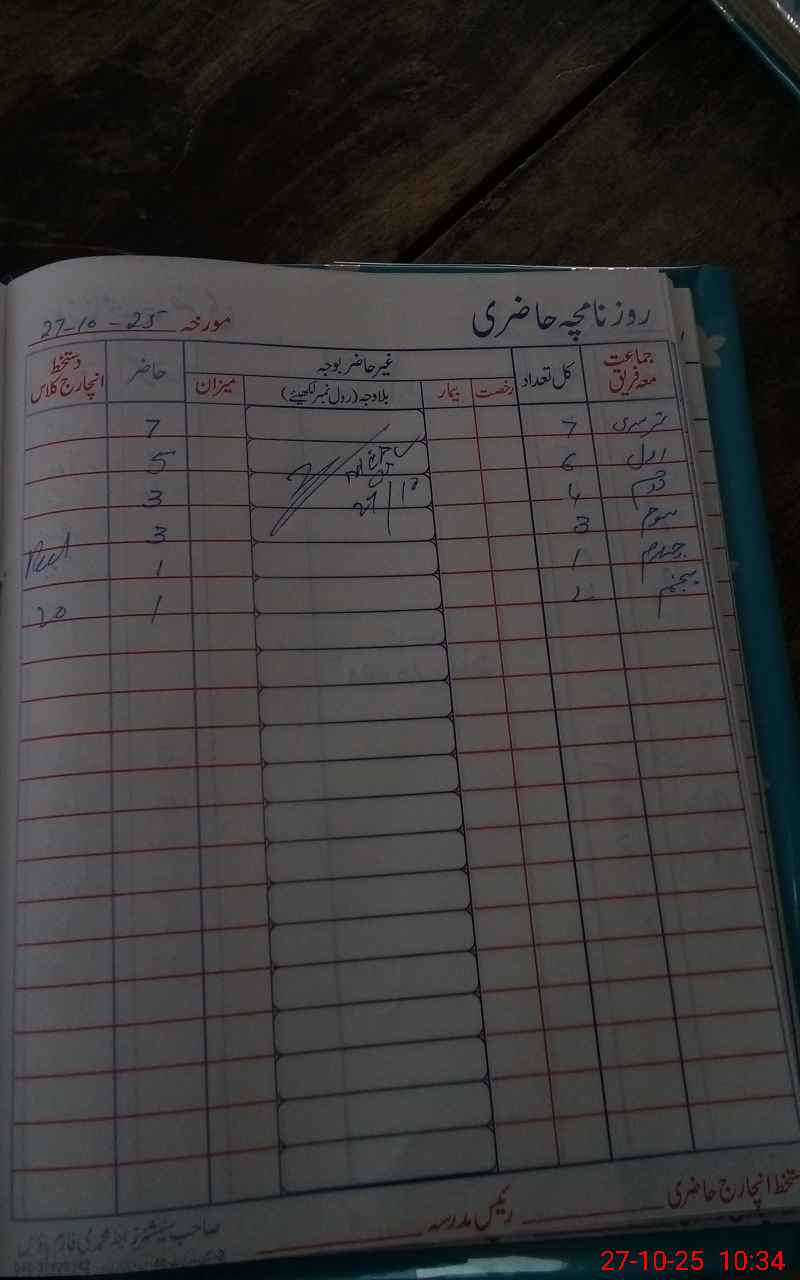 روزنامچہ حاضری
مورخہ 27-10-25
جماعت معہ فریق کل تعداد غیر حاضر بوجہ حاضر دستخط انچارج کلاس
رخصت بیمار بلاوجہ (رول نمبر لکھیئے) میزان
نرسری 7 7
اول 6 5
دوم 4 3
سوم 3 3
چہارم 1 1
پنجم 2 1
20
27/10
دستخط انچارج حاضری
رئیس مدرسہ
27-10-25 10:34